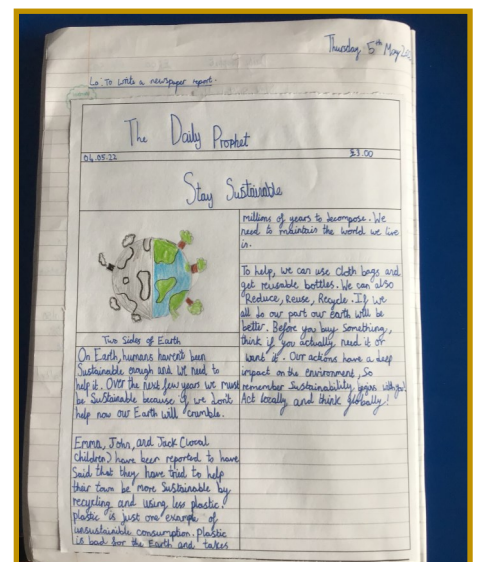 Thursday 5th May
Lo: To write a newspaper report.
The Daily Prophet
04.05.22
£3.00
Stay Sustainable
Two Sides of Earth
On Earth, humans haven't been
Sustainable enough and we need to
help it. Over the next few years we must
be Sustainable because if we don't
help now our Earth will crumble.
Emma, John, and Jack (local
children) have been reported to have
Said that they have tried to help
their town be more Sustainable by
recycling and using less plastic!
plastic is just one example of
unsustainible consumption. Plastic
is bad for the Earth and takes
millions of years to decompose. We
need to maintain the world we live
in.
To help, we can use Cloth bags and
get reusable bottles. We can also
Reduce, Reuse, Recycle. If we
all do our part our earth will be
better. Before you buy something,
think if you actually need it or
want it. Our actions have a deep
impact on the environment, So
remember Sustainability begins with you.
Act locally and think globally!